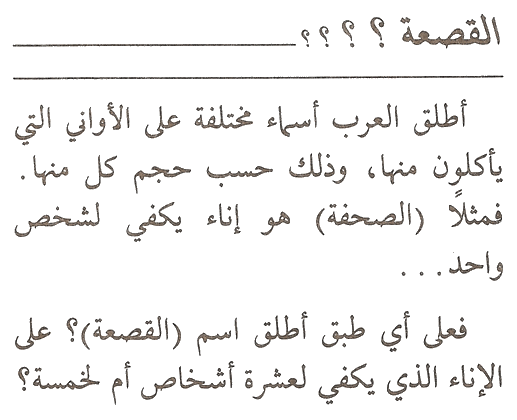 القصعة ؟ ؟ ؟ ؟
أطلق العرب أسماء مختلفة على الأواني التي
يأكلون منها، وذلك حسب حجم كل منها.
فمثلاً (الصحفة) هو إناء يكفي لشخص
واحد...
فعلى أي طبق أطلق اسم (القصعة)؟ على
الإناء الذي يكفي لعشرة أشخاص أم لخمسة؟